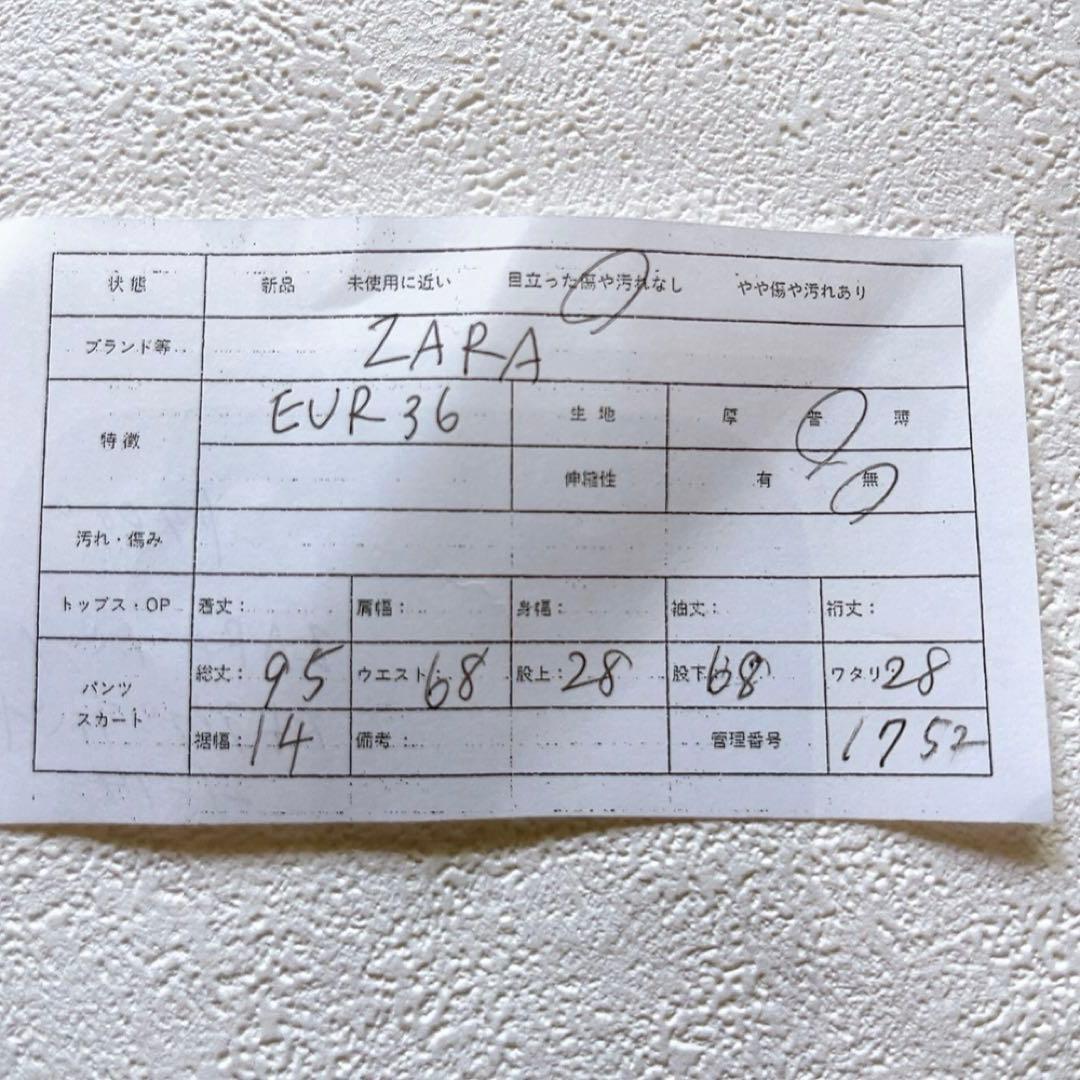 状態 新品 未使用に近い 目立った傷や汚れなし やや傷や汚れあり
ブランド等 ZARA
特徴 EUR36 生地 厚 普 薄
伸縮性 有 無
汚れ・傷み
トップス・OP 着丈: 肩幅: 身幅: 袖丈: 裄丈:
パンツ スカート 総丈: 95 ウエスト: 68 股上: 28 股下: 68 ワタリ 28
裾幅: 14 備考: 管理番号 1752